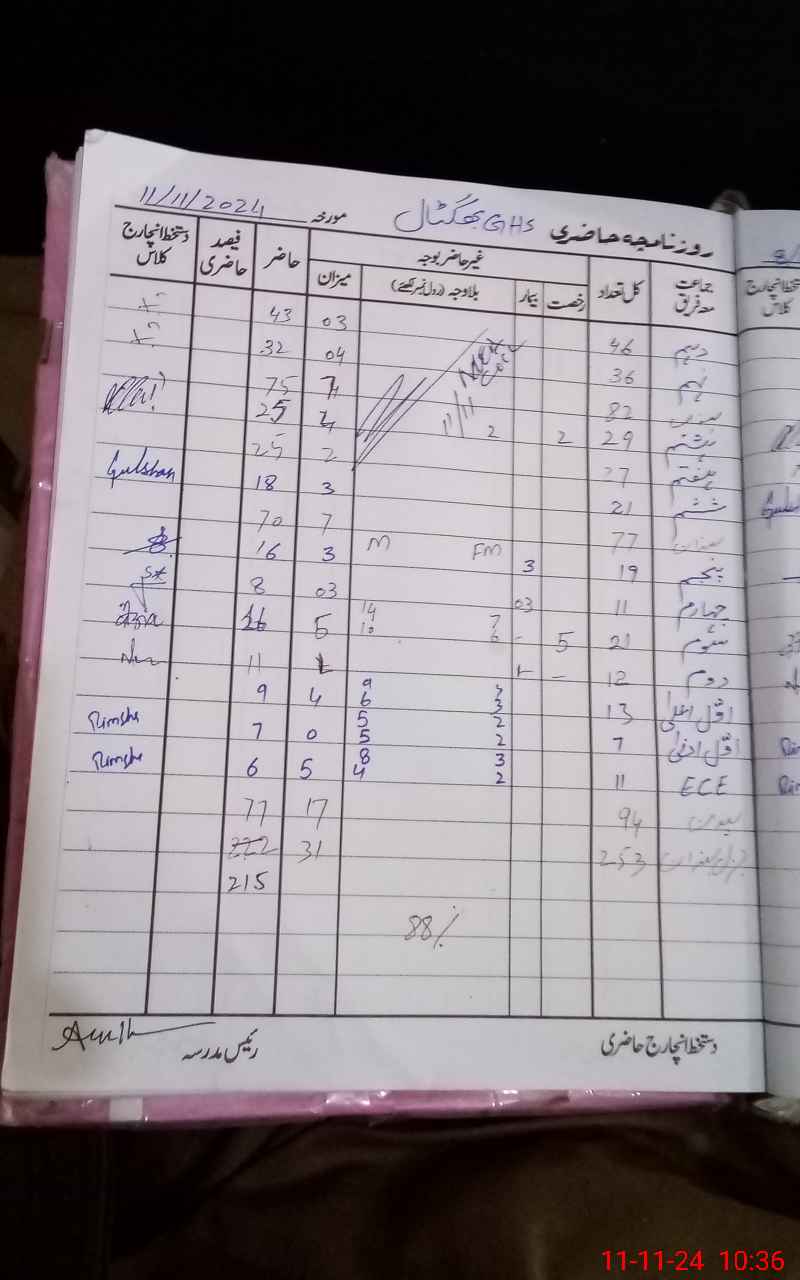 روزنامچہ حاضری GHS بھگٹال مورخہ 11/11/2024
جماعت معہ فریق کل تعداد غیر حاضر بوجہ حاضر فیصد حاضری دستخط انچارج کلاس
رخصت بیمار بلاوجہ (رول نمبر لکھئے) میزان
دہم 46 03 43
نہم 36 04 32
82 7 75
ہشتم 29 2 2 4 25
11/11
ہفتم 27 2 25
ششم 21 3 18 Gulshan
میزان 77 7 70
M FM
پنجم 19 3 3 16
چہارم 11 03 03 8
14 7
سوئم 21 5 - 10 6 5 16
دوم 12 - 1 1 11
9 3
اوّل اعلیٰ 13 6 3 4 9
5 2
اوّل ادنیٰ 7 5 2 0 7 Rimsha
8 3
ECE 11 4 2 5 6 Rimsha
میزان 94 17 77
253 31 222
215
88%
دستخط انچارج حاضری رئیس مدرسہ
11-11-24 10:36